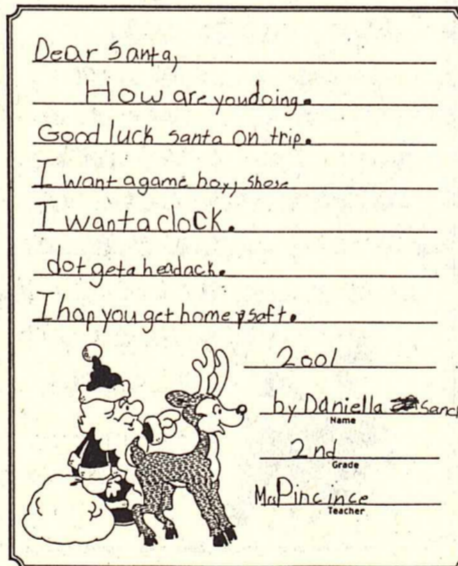 Dear Santa,
How are youdoing.
Good luck santa on trip.
I want agame boy, shose
I wantaclock.
dot geta headack.
I hap you get home saft.
2001
by Daniella Sanch
Name
2nd
Grade
Mrs Pincince
Teacher